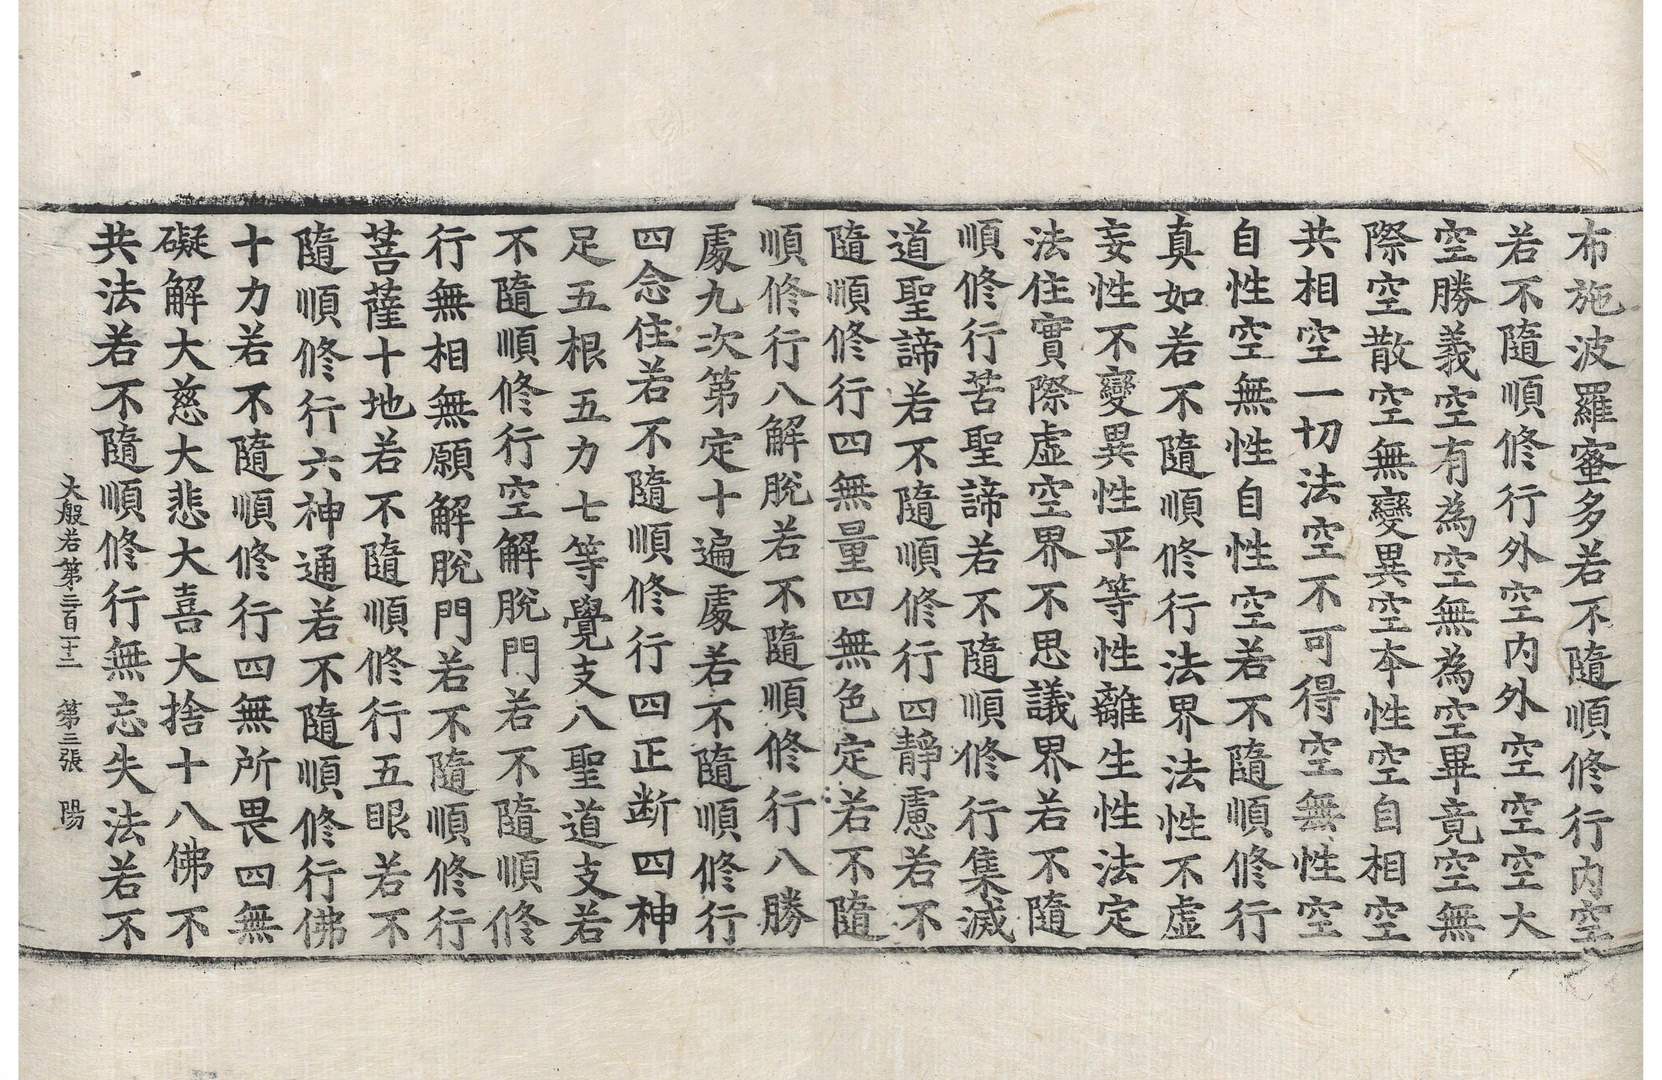 布施波羅蜜多若不隨順修行內空
若不隨順修行外空內外空空空大
空勝義空有為空無為空畢竟空無
際空散空無變異空本性空自相空
共相空一切法空不可得空無性空
自性空無性自性空若不隨順修行
真如若不隨順修行法界法性不虛
妄性不變異性平等性離生性法定
法住實際虛空界不思議界若不隨
順修行苦聖諦若不隨順修行集滅
道聖諦若不隨順修行四靜慮若不
隨順修行四無量四無色定若不隨
順修行八解脫若不隨順修行八勝
處九次第定十遍處若不隨順修行
四念住若不隨順修行四正断四神
足五根五力七等覺支八聖道支若
不隨順修行空解脫門若不隨順修
行無相無願解脫門若不隨順修行
菩薩十地若不隨順修行五眼若不
隨順修行六神通若不隨順修行佛
十力若不隨順修行四無所畏四無
礙解大慈大悲大喜大捨十八佛不
共法若不隨順修行無忘失法若不
大般若第三百十二 第三張 陽